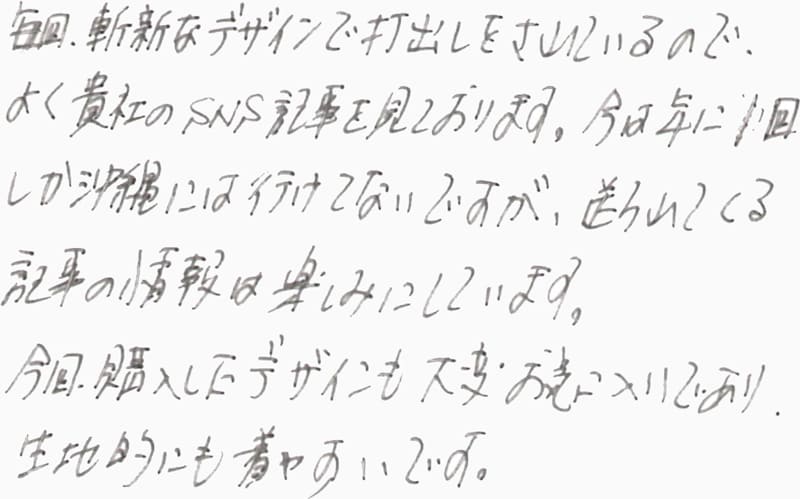 毎回、斬新なデザインで打出しをされているので、
よく貴社のSNS記事を見ております。今は年に1回
しか沖縄には行けてないですが、送られてくる
記事の情報は楽しみにしています。
今回、購入したデザインも大変お気に入りであり、
生地的にも着やすいです。